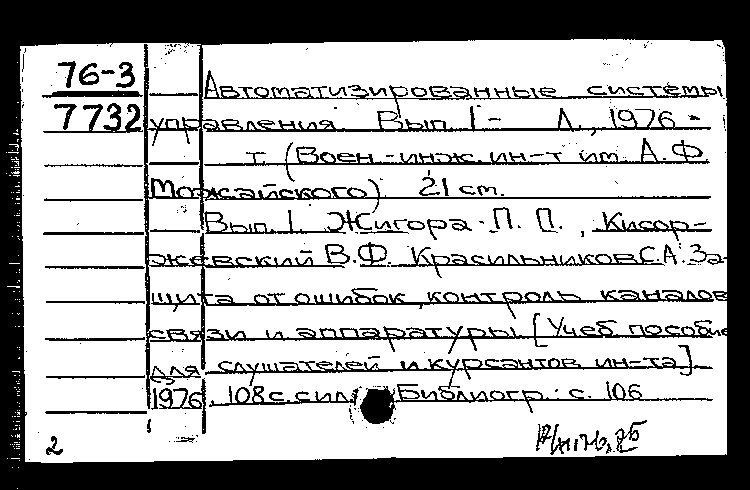 76-3 Автоматизированные системы
7732 управления. Вып. 1- Л., 1976-
т. (Воен.-инж. ин-т им. А.Ф.
Можайского) 21 см.
Вып. 1. Жигора Л. П., Кисор-
жевский В.Ф. Красильников С.А. За-
щита от ошибок, контроль каналов
связи и аппаратуры [Учеб. пособие
для слушателей и курсантов ин-та]
1976. 108 с. с ил. Библиогр.: с. 106
2